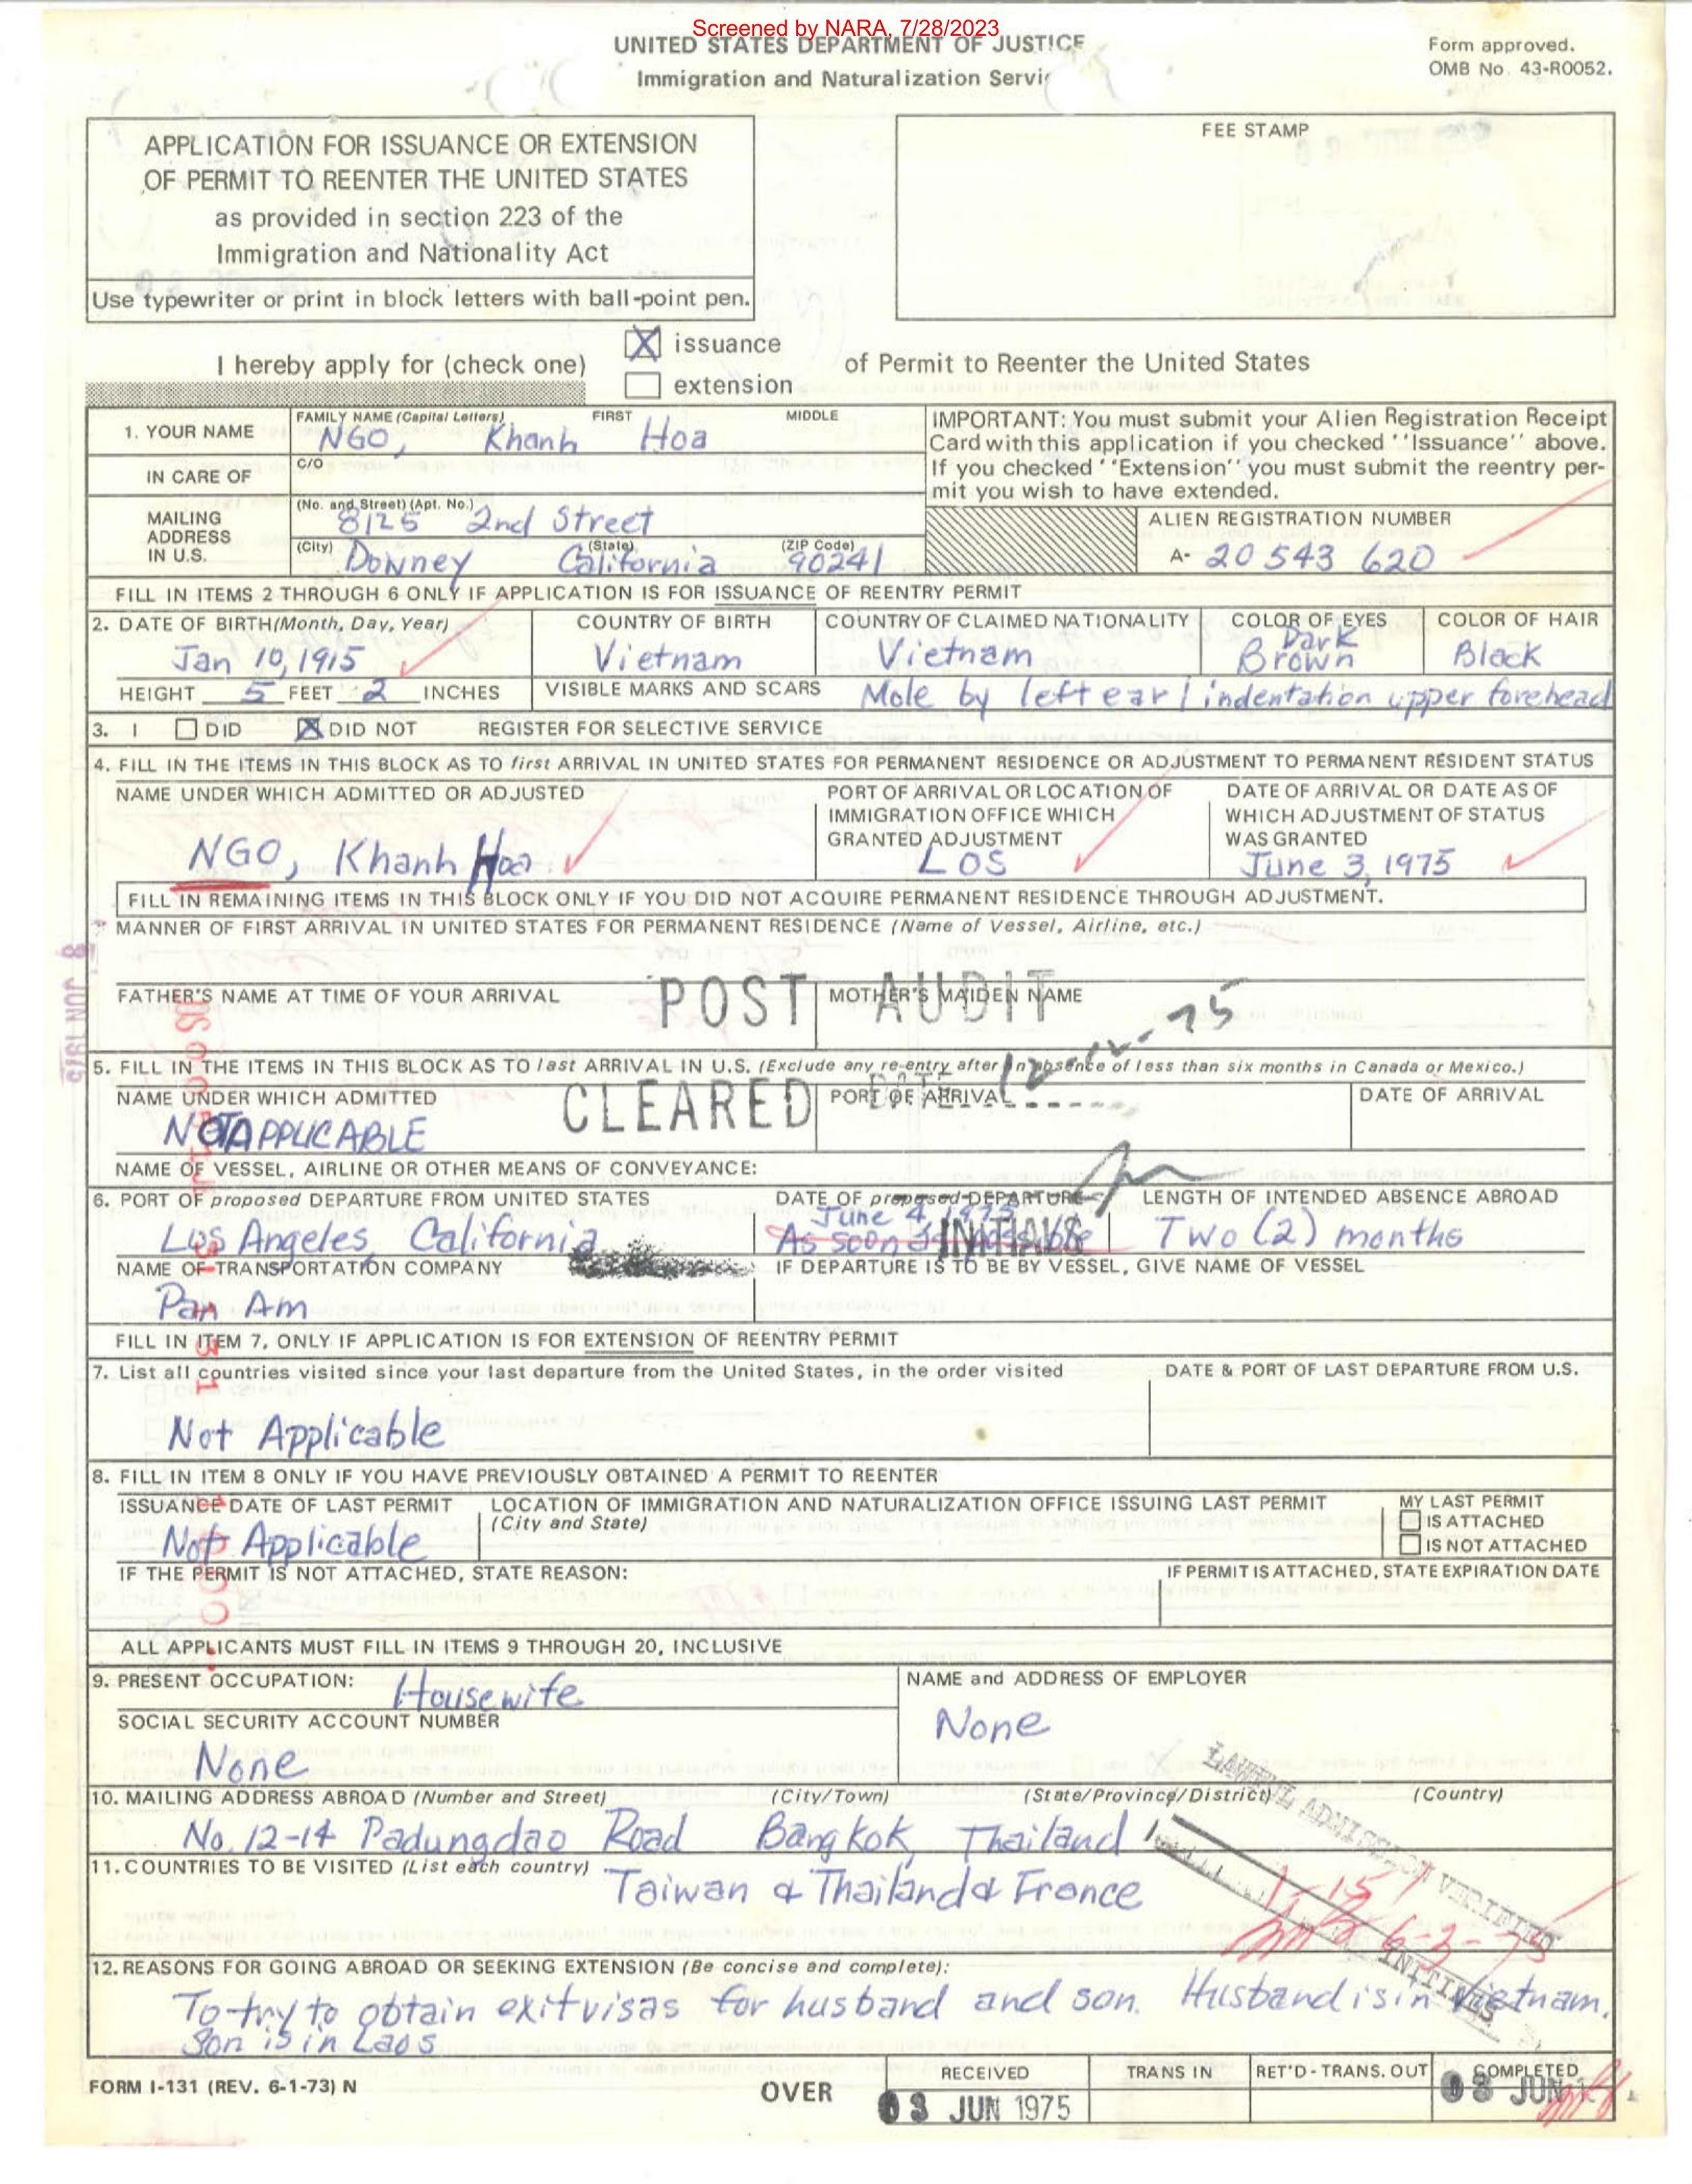 Screened by NARA, 7/28/2023
UNITED STATES DEPARTMENT OF JUSTICE
Immigration and Naturalization Servi
Form approved.
OMB No. 43-R0052.
APPLICATION FOR ISSUANCE OR EXTENSION
OF PERMIT TO REENTER THE UNITED STATES
as provided in section 223 of the
Immigration and Nationality Act
Use typewriter or print in block letters with ball-point pen.
FEE STAMP
I hereby apply for (check one)
X issuance
extension
of Permit to Reenter the United States
1. YOUR NAME
FAMILY NAME (Capital Letters) FIRST MIDDLE
NGO, Khanh Hoa
IN CARE OF
C/O
MAILING ADDRESS IN U.S.
(No. and Street) (Apt. No.)
8125 2nd Street
(City) (State) (ZIP Code)
Downey California 90241
IMPORTANT: You must submit your Alien Registration Receipt
Card with this application if you checked ''Issuance'' above.
If you checked ''Extension'' you must submit the reentry per-
mit you wish to have extended.
ALIEN REGISTRATION NUMBER
A- 20 543 620
FILL IN ITEMS 2 THROUGH 6 ONLY IF APPLICATION IS FOR ISSUANCE OF REENTRY PERMIT
2. DATE OF BIRTH (Month, Day, Year) COUNTRY OF BIRTH COUNTRY OF CLAIMED NATIONALITY COLOR OF EYES COLOR OF HAIR
Jan 10, 1915 Vietnam Vietnam Dark Brown Black
HEIGHT 5 FEET 2 INCHES VISIBLE MARKS AND SCARS Mole by left ear / indentation upper forehead
3. I DID X DID NOT REGISTER FOR SELECTIVE SERVICE
4. FILL IN THE ITEMS IN THIS BLOCK AS TO first ARRIVAL IN UNITED STATES FOR PERMANENT RESIDENCE OR ADJUSTMENT TO PERMANENT RESIDENT STATUS
NAME UNDER WHICH ADMITTED OR ADJUSTED
NGO, Khanh Hoa
PORT OF ARRIVAL OR LOCATION OF
IMMIGRATION OFFICE WHICH
GRANTED ADJUSTMENT
LOS
DATE OF ARRIVAL OR DATE AS OF
WHICH ADJUSTMENT OF STATUS
WAS GRANTED
June 3, 1975
FILL IN REMAINING ITEMS IN THIS BLOCK ONLY IF YOU DID NOT ACQUIRE PERMANENT RESIDENCE THROUGH ADJUSTMENT.
MANNER OF FIRST ARRIVAL IN UNITED STATES FOR PERMANENT RESIDENCE (Name of Vessel, Airline, etc.)
FATHER'S NAME AT TIME OF YOUR ARRIVAL
MOTHER'S MAIDEN NAME
POST AUDIT
8 JUN 1975
5. FILL IN THE ITEMS IN THIS BLOCK AS TO last ARRIVAL IN U.S. (Exclude any re-entry after an absence of less than six months in Canada or Mexico.)
NAME UNDER WHICH ADMITTED PORT OF ARRIVAL DATE OF ARRIVAL
NOT APPLICABLE
CLEARED
NAME OF VESSEL, AIRLINE OR OTHER MEANS OF CONVEYANCE:
6. PORT OF proposed DEPARTURE FROM UNITED STATES
Los Angeles, California
DATE OF proposed DEPARTURE
June 4, 1975
As soon as possible
INITIALS
LENGTH OF INTENDED ABSENCE ABROAD
Two (2) months
NAME OF TRANSPORTATION COMPANY
Pan Am
IF DEPARTURE IS TO BE BY VESSEL, GIVE NAME OF VESSEL
FILL IN ITEM 7, ONLY IF APPLICATION IS FOR EXTENSION OF REENTRY PERMIT
7. List all countries visited since your last departure from the United States, in the order visited
DATE & PORT OF LAST DEPARTURE FROM U.S.
Not Applicable
8. FILL IN ITEM 8 ONLY IF YOU HAVE PREVIOUSLY OBTAINED A PERMIT TO REENTER
ISSUANCE DATE OF LAST PERMIT
Not Applicable
LOCATION OF IMMIGRATION AND NATURALIZATION OFFICE ISSUING LAST PERMIT
(City and State)
MY LAST PERMIT
IS ATTACHED
IS NOT ATTACHED
IF THE PERMIT IS NOT ATTACHED, STATE REASON:
IF PERMIT IS ATTACHED, STATE EXPIRATION DATE
ALL APPLICANTS MUST FILL IN ITEMS 9 THROUGH 20, INCLUSIVE
9. PRESENT OCCUPATION: Housewife
NAME and ADDRESS OF EMPLOYER
None
SOCIAL SECURITY ACCOUNT NUMBER
None
10. MAILING ADDRESS ABROAD (Number and Street) (City/Town) (State/Province/District) (Country)
No. 12-14 Padungdao Road Bangkok, Thailand
LAWFUL ADMISSION VERIFIED
6-3-75
INITIALS
11. COUNTRIES TO BE VISITED (List each country)
Taiwan & Thailand & France
12. REASONS FOR GOING ABROAD OR SEEKING EXTENSION (Be concise and complete):
To try to obtain exit visas for husband and son. Husband is in Vietnam.
Son is in Laos
FORM I-131 (REV. 6-1-73) N
OVER
RECEIVED TRANS IN RET'D-TRANS. OUT COMPLETED
03 JUN 1975
03 JUN